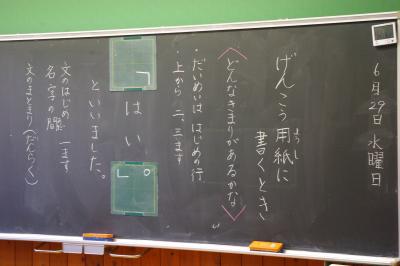 6月29日 水曜日
げんこう用紙に
ようし
書くとき、
〈どんなきまりがあるかな〉
・だいめいは はじめの行
・上から 二、三ます
「はい。」
といいました。
文のはじめ 一ます
名字の
文のまとまり(だんらく)